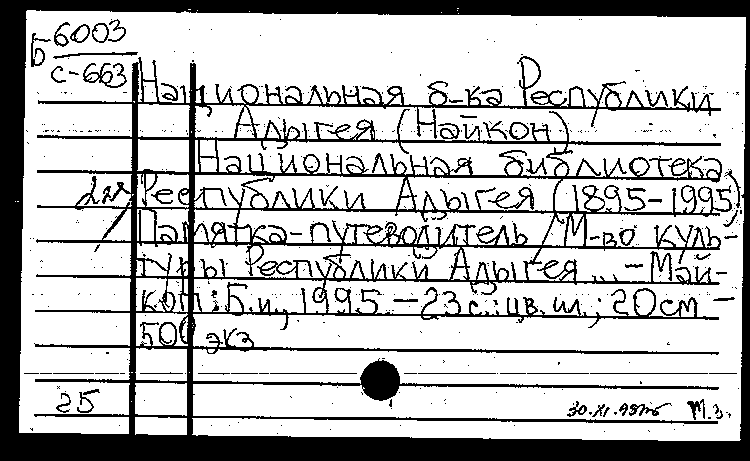 Б 6003
С-663
Национальная б-ка Республики
Адыгея (Найкон)
Национальная библиотека
Республики Адыгея (1895-1995)
Памятка-путеводитель / М-во куль-
туры Республики Адыгея... - Май-
коп: Б.и., 1995 - 23 с.: цв. ил.; 20 см -
500 экз
25
30.XI.95 М.З.